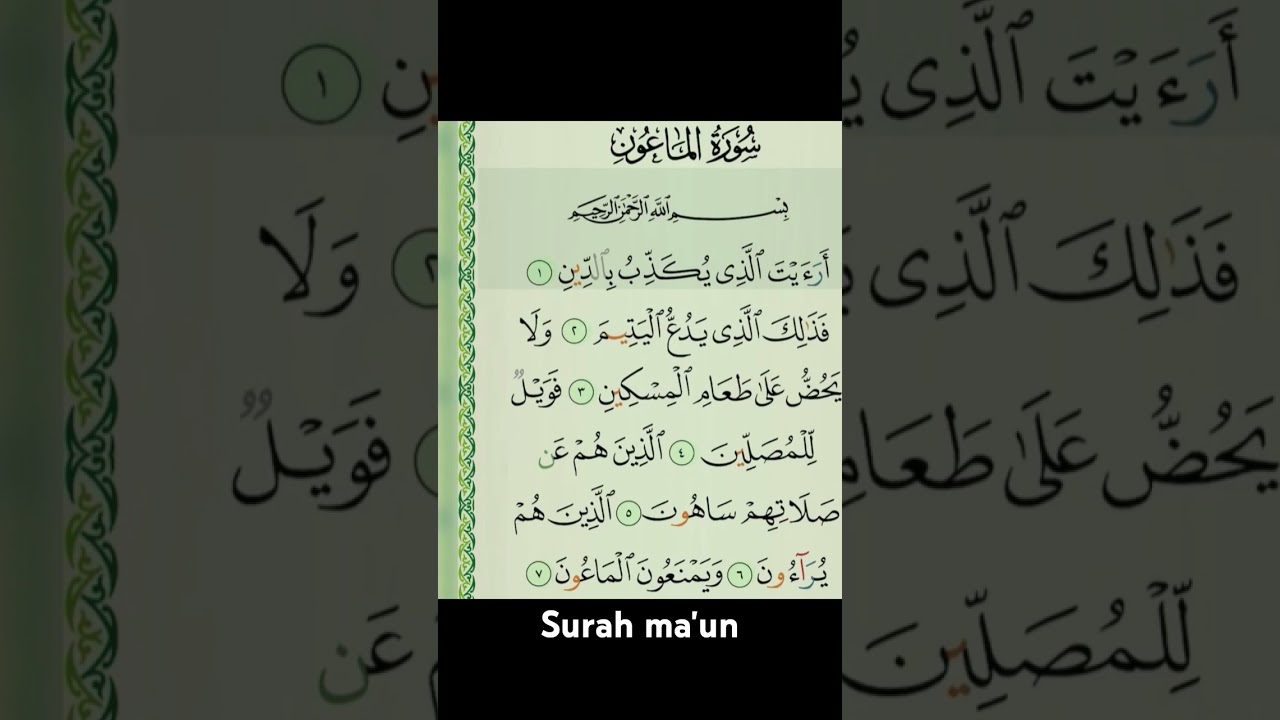 سُورَةُ الْمَاعُونِ
بِسْمِ اللَّهِ الرَّحْمَٰنِ الرَّحِيمِ
أَرَءَيْتَ ٱلَّذِى يُكَذِّبُ بِٱلدِّينِ ١
فَذَٰلِكَ ٱلَّذِى يَدُعُّ ٱلْيَتِيمَ ٢ وَلَا
يَحُضُّ عَلَىٰ طَعَامِ ٱلْمِسْكِينِ ٣ فَوَيْلٌ
لِّلْمُصَلِّينَ ٤ ٱلَّذِينَ هُمْ عَن
صَلَاتِهِمْ سَاهُونَ ٥ ٱلَّذِينَ هُمْ
يُرَآءُونَ ٦ وَيَمْنَعُونَ ٱلْمَاعُونَ ٧
Surah ma'un